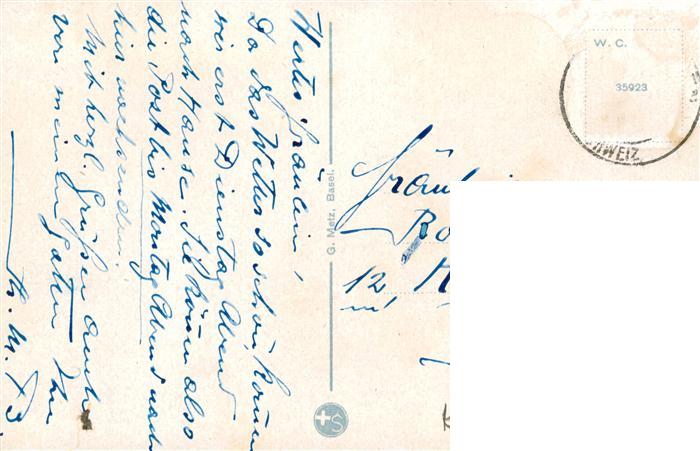 Wertes Fräulein!
Da das Wetter so schön, kommen
wir erst Dienstag Abend
nach Hause. Sie können also
die Post bis Montag Abend nach
hier nachsenden.
Mit herzl. Grüßen auch
von meinem Gatten Ihre
G. Metz, Basel.
W. C.
35923
WEIZ
Fräul
12